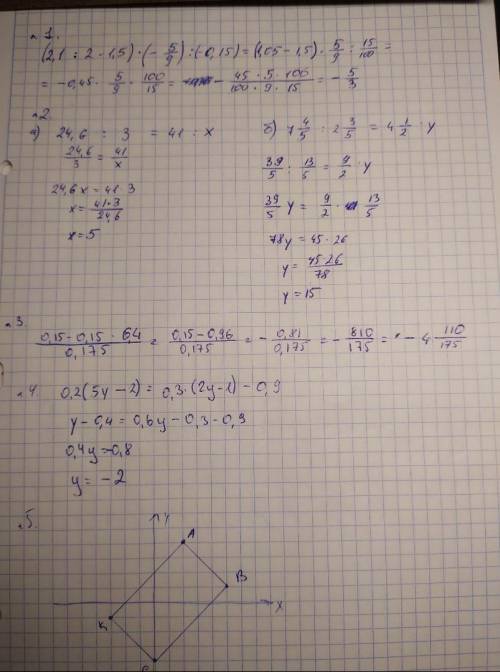 №1.
(2,1 : 2 - 1,5) · (- 5/9) : (-0,15) = (1,05 - 1,5) · 5/9 : 15/100 =
= -0,45 · 5/9 · 100/15 = - 45 · 5 · 100 / 100 · 9 · 15 = - 5/3
№2
а) 24,6 : 3 = 41 : x
24,6/3 = 41/x
24,6 x = 41 3
x = 41·3/24,6
x = 5
б) 7 4/5 : 2 3/5 = 4 1/2 : y
39/5 : 13/5 = 9/2 : y
39/5 y = 9/2 · 13/5
78y = 45 · 26
y = 45 26/78
y = 15
№3.
0,15 - 0,15 · 64 / 0,175 = 0,15 - 0,96 / 0,175 = - 0,81/0,175 = - 810/175 = - 4 110/175
№4. 0,2(5y - 2) = 0,3·(2y-1) - 0,9
y - 0,4 = 0,6y - 0,3 - 0,9
0,4y = -0,8
y = -2
№5.
y
A
B
x
K
C